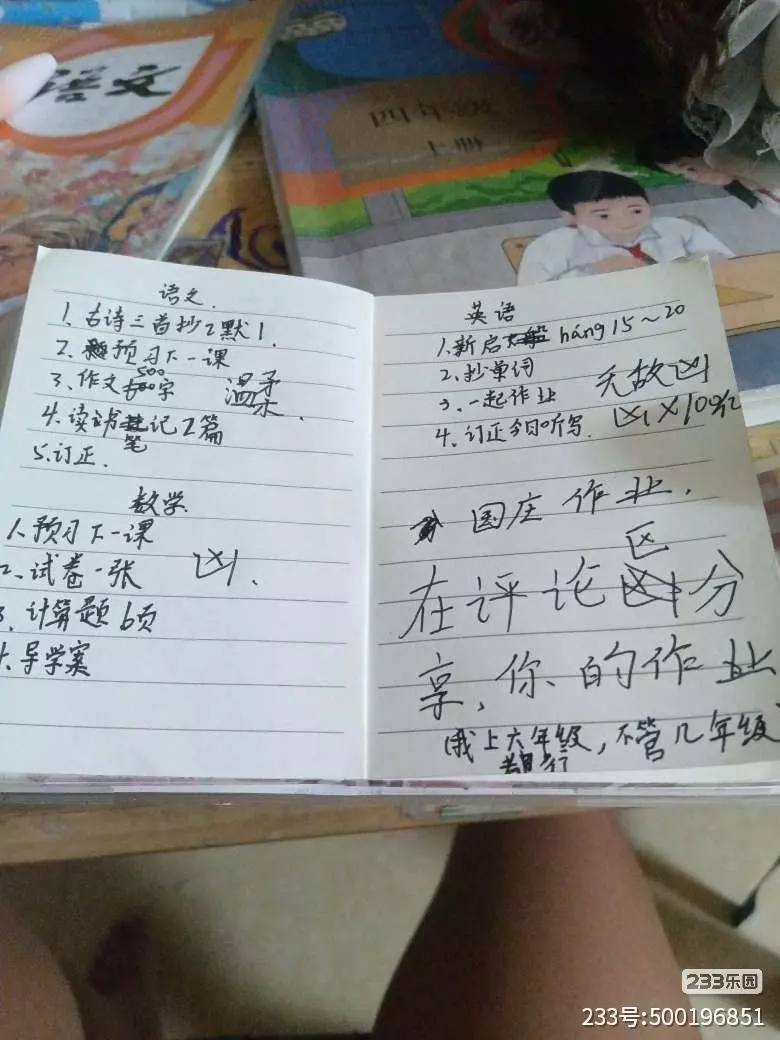 语文
四年级
上册
语文.
1. 古诗三首抄2默1.
2. 预习下一课
3. 作文500字 温柔.
4. 读书笔记2篇
5. 订正.
数学
1. 预习下一课
2. 试卷一张 凶.
3. 计算题6页
4. 导学案
英语
1. 新启háng 15~20
2. 抄单词
3. 一起作业
4. 订正今日听写.
无故凶
凶×100亿
国庄作业.
在评论区分
享,你的作业
(我上六年级,不管几年级
都行
233乐园
233号:500196851